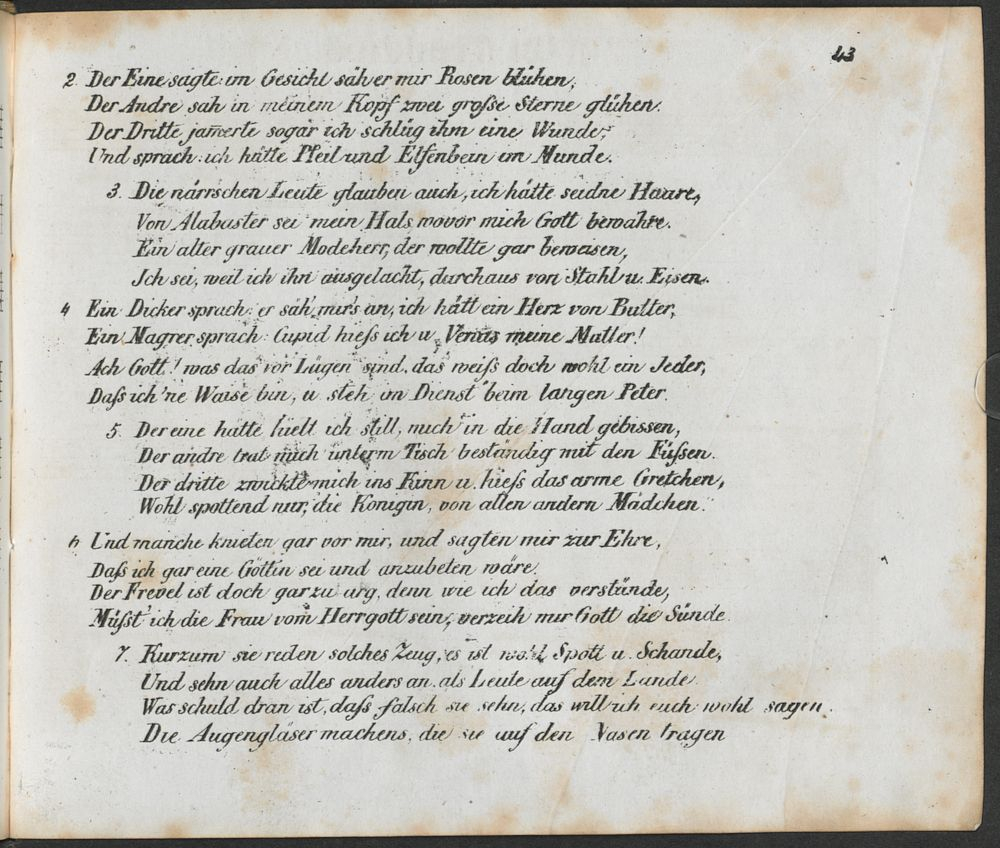 43
2. Der Eine sagte: im Gesicht säh er mir Rosen blühen,
Der Andre sah in meinem Kopf zwei große Sterne glühen.
Der Dritte jam̄erte sogar ich schlüg ihm eine Wunde,
Und sprach: ich hätte Pfeil und Elfenbein im Munde.
3. Die närrschen Leute glauben auch, ich hätte seidne Haare,
Von Alabaster sei mein Hals wovor mich Gott bewahre.
Ein alter grauer Modeherr, der wollte gar beweisen,
Ich sei, weil ich ihn ausgelacht, durchaus von Stahl u. Eisen.
4 Ein Dicker sprach: er säh' mir's an, ich hätt ein Herz von Butter,
Ein Magrer sprach: Cupid hieß ich u. Venus meine Mutter!
Ach Gott! was das vor Lügen sind, das weiß doch wohl ein Jeder,
Daß ich 'ne Waise bin, u. steh' in Dienst beim langen Peter.
5. Der eine hätte, hielt ich still, mich in die Hand gebissen,
Der andre trat mich unterm Tisch beständig mit den Füßen.
Der dritte zwickte mich ins Kinn u. hieß das arme Gretchen,
Wohl spottend nur, die Königin, von allen andern Mädchen.
6 Und manche knieten gar vor mir, und sagten mir zur Ehre,
Daß ich gar eine Göttin sei und anzubeten wäre.
Der Frevel ist doch gar zu arg, denn wie ich das verstünde,
Müßt' ich die Frau vom Herrgott sein, verzeih mir Gott die Sünde.
7. Kurzum sie reden solches Zeug, es ist wohl Spott u. Schande,
Und sehn auch alles anders an, als Leute auf dem Lande.
Was schuld dran ist, daß falsch sie sehn, das will ich euch wohl sagen.
Die Augengläser machens, die sie auf den Nasen tragen